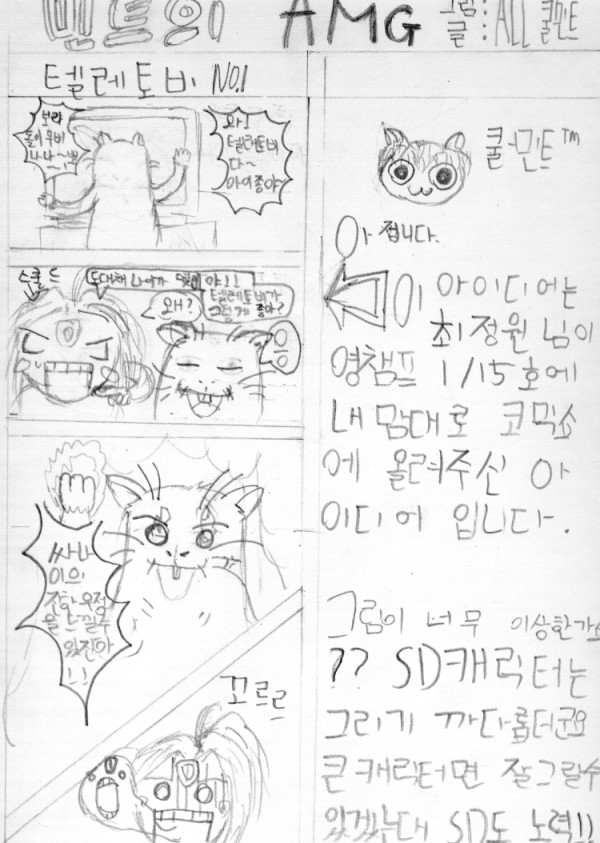 민트의 AMG
그림
글 : ALL 쿨민트
텔레토비 NO.1
보라
돌이 뚜비
나나~뽀
와!
텔레토비
다~
아이좋아
스쿨드
도대체 나이가 몇인데 야!!
왜?
텔레토비가
그렇게 좋아?
응
싸나
이의
진한 우정
을 느낄수
있잖아
!!
꼬르르
쿨~민트™
아 접니다.
이 아이디어는
최정원 님이
영챔프 1/15호에
내맘대로 코믹쇼
에 올려주신 아
이디어 입니다.
그림이 너무 이상한가요
?? SD캐릭터는
그리기 까다롭더군요
큰 캐릭터면 잘그릴수
있겠는데 SD도 노력!!